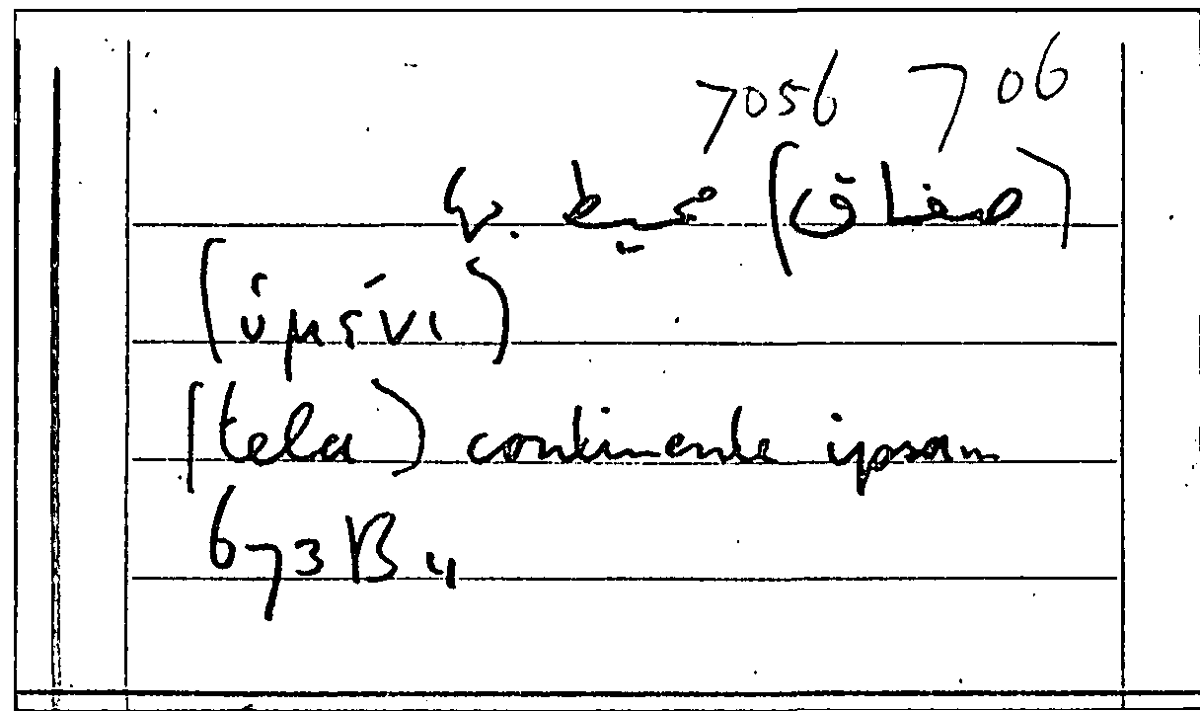 7056 706
(صفاق) محيط بها
(ὑμένι)
(tela) continente ipsam
673 B 4